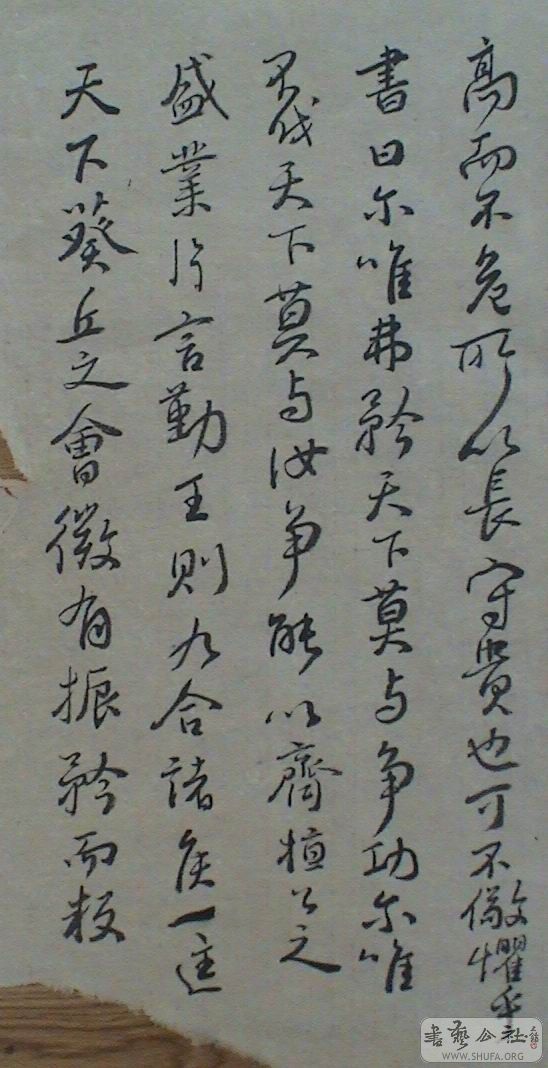 高而不危所以長守貴也可不儆懼乎
書曰尔唯弗矜天下莫与争功尔唯
不伐天下莫与汝争能以齊桓公之
盛業片言勤王則九合諸侯一匡
天下葵丘之會微有振矜而叛
書藝公社
WWW.SHUFA.ORG